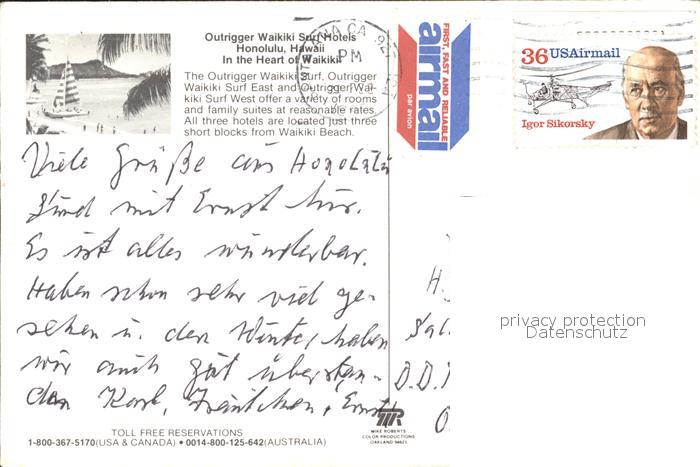 Outrigger Waikiki Surf Hotels
Honolulu, Hawaii
In the Heart of Waikiki
The Outrigger Waikiki Surf, Outrigger
Waikiki Surf East and Outrigger Wai-
kiki Surf West offer a variety of rooms
and family suites at reasonable rates.
All three hotels are located just three
short blocks from Waikiki Beach.
Viele Grüße aus Honolulu
Sind mit Ernst hier.
Es ist alles wunderbar.
Haben schon sehr viel ge-
sehen u. den Winter haben
wir auch gut überstan-
den Karl, Ernst
TOLL FREE RESERVATIONS
1-800-367-5170 (USA & CANADA) • 0014-800-125-642 (AUSTRALIA)
MIKE ROBERTS
COLOR PRODUCTIONS
OAKLAND 94623
CA 927
PM
FIRST, FAST AND RELIABLE
airmail
par avion
36 USAirmail
Igor Sikorsky
H.
D.D.
privacy protection
Datenschutz